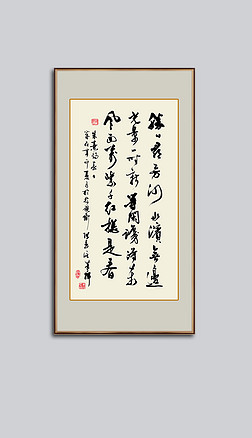 勝日尋芳泗水濱無邊
光景一時新等閒識得東
風面萬紫千紅總是春
朱熹詩春日